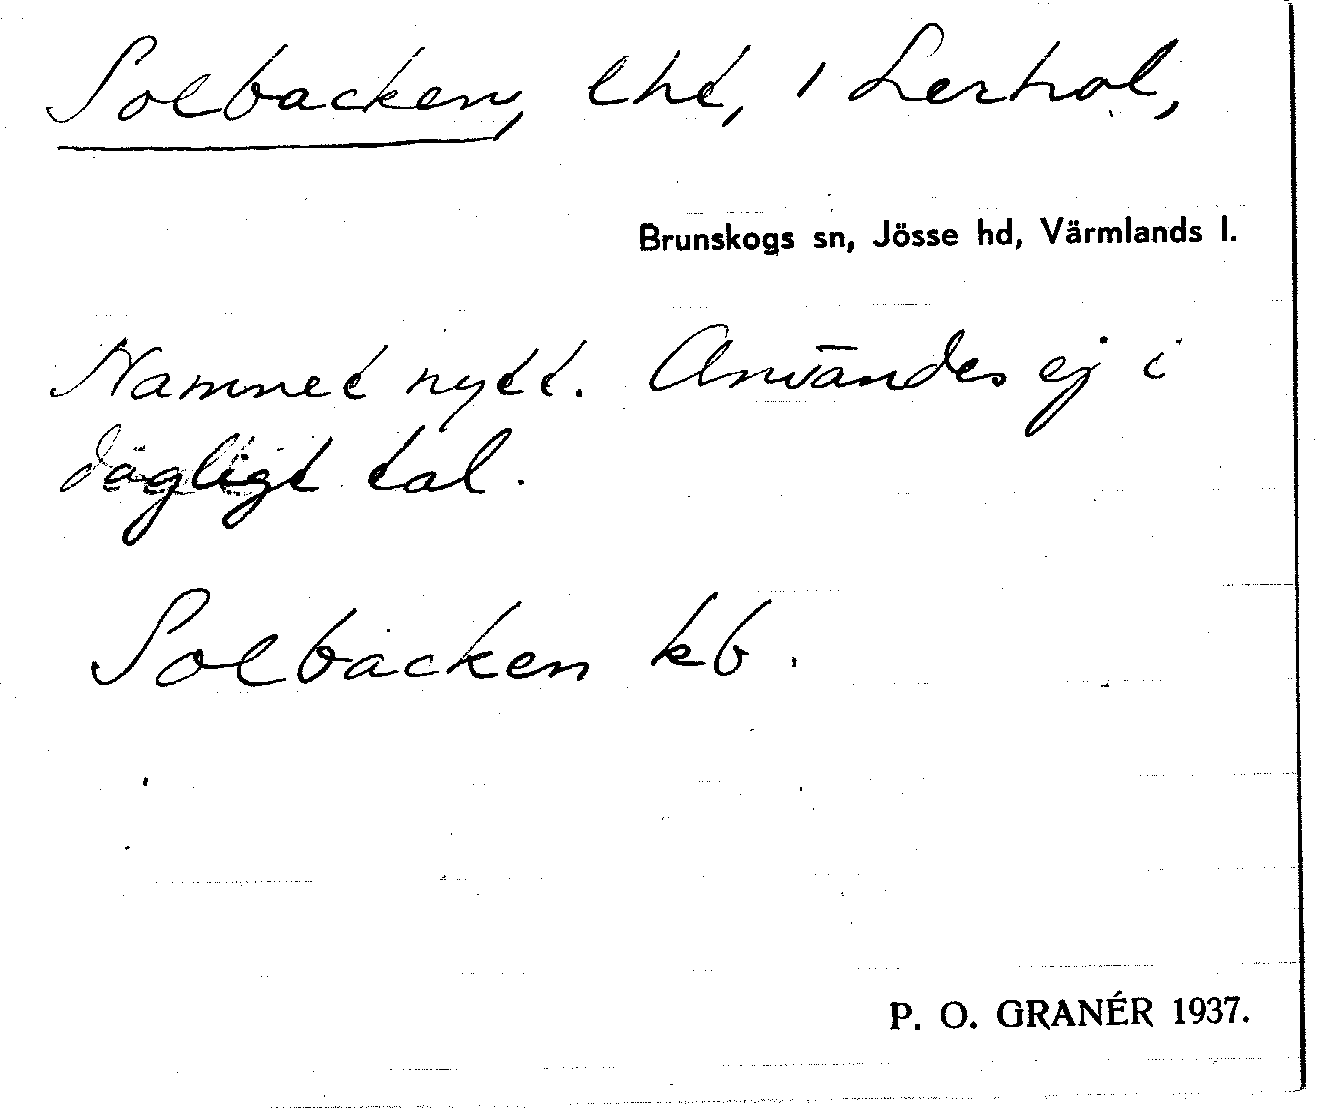 Solbacken, lht, i Lerhol,
Brunskogs sn, Jösse hd, Värmlands l.
Namnet nytt. Användes ej i
dagligt tal.
Solbacken kb.
P. O. GRANÉR 1937.